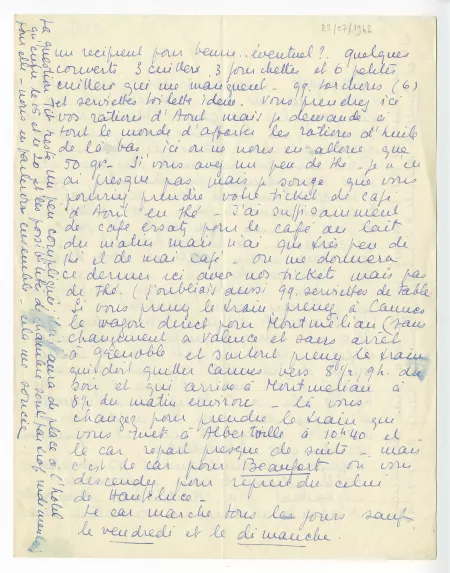 22/07/1942
un recipient pour beurre.. éventuel? quelques
couverts 3 cuillers 3 fourchettes et 6 petites
cuillers qui me manquent - qq. torchons (6)
et serviettes toilette idem. Vous prendrez ici
vos rations d'Aout mais je demande à
tout le monde d'apporter les rations d'huile
de là bas, ici on ne nous en alloue que
50 gr. - Si vous avez un peu de thé - je n'en
ai presque pas mais je songe que vous
pourriez prendre votre ticket de café
d'Aout en thé - J'ai suffisamment
de café ersatz pour le café au lait
du matin mais n'ai que très peu de
thé et de vrai café - on me donnera
ce dernier ici avec nos ticket mais pas
de thé. (J'oubliais aussi qq. serviettes de table
Si vous prenez le train prenez à Cannes
le wagon direct pour Montmélian (sans
changement à Valence et sans arrêt
à Grenoble et surtout prenez le train
qui doit quitter Cannes vers 8h½ 9h. du
soir et qui arrive à Montmélian à
8h du matin environ - là vous
changez pour prendre le train qui
vous met à Albertville à 10h40 et
le car repart presque de suite - mais
c'est le car pour Beaufort où vous
descendez pour reprendre celui
de Hauteluce -
Le car marche tous les jours sauf
le vendredi et le dimanche.
La question Tet reste un peu compliquée il y aura de place à l'hôtel
qu'entre le 15 et le 20 et les possibilités du hameau sont par trop rudimentaires
pour elle - nous en parlerons ensemble - cela me soucie